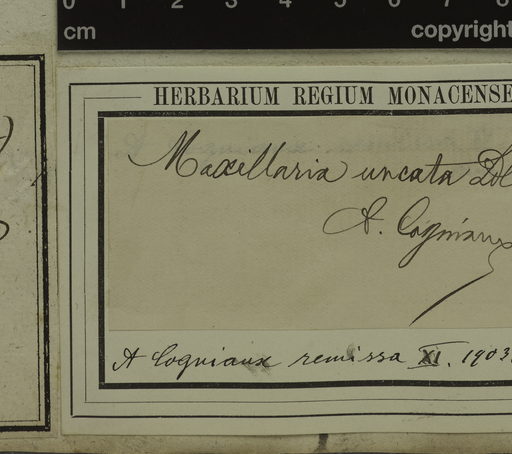 0 1 2 3 4 5 6 7 8
cm copyright
HERBARIUM REGIUM MONACENSE
Maxillaria uncata
A. Cogniaux
A Cogniaux remissa XI. 1903.